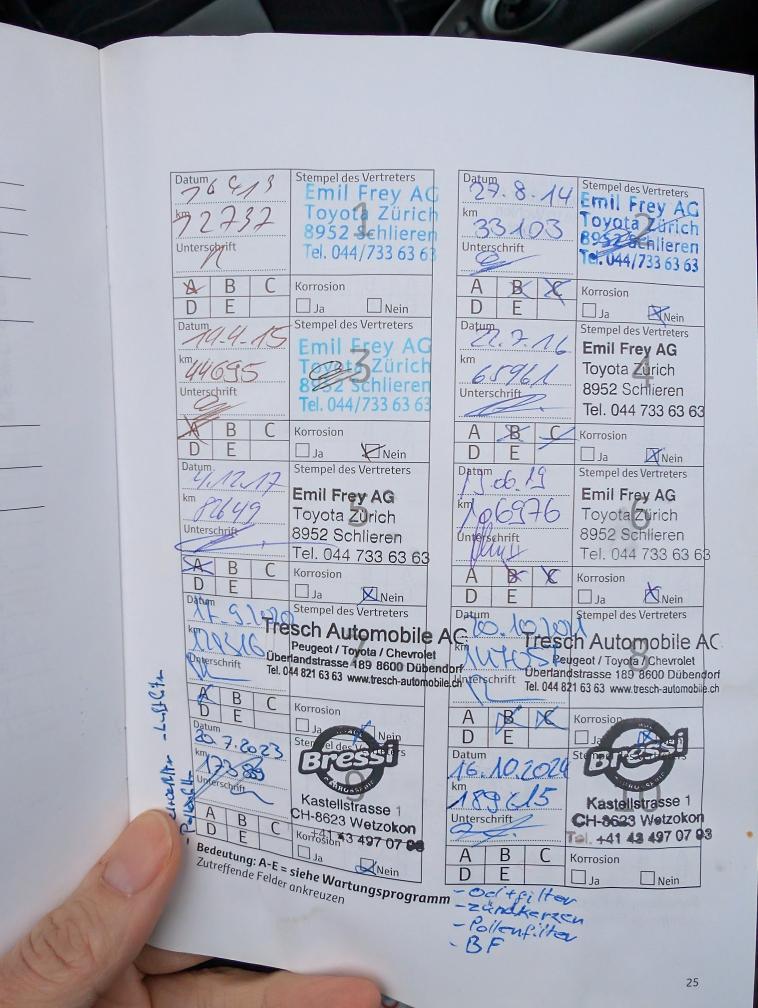 Datum
km 12737
Unterschrift
Stempel des Vertreters
1
Emil Frey AG
Toyota Zürich
8952 Schlieren
Tel. 044/733 63 63
A B C
D E
Korrosion
Ja Nein
Datum 27.8.14
km 33103
Unterschrift
Stempel des Vertreters
2
Emil Frey AG
Toyota Zürich
8952 Schlieren
Tel. 044/733 63 63
A B C
D E
Korrosion
Ja Nein
Datum 14.4.15
km 44695
Unterschrift
Stempel des Vertreters
3
Emil Frey AG
Toyota Zürich
8952 Schlieren
Tel. 044/733 63 63
A B C
D E
Korrosion
Ja Nein
Datum 22.7.16
km 65961
Unterschrift
Stempel des Vertreters
4
Emil Frey AG
Toyota Zürich
8952 Schlieren
Tel. 044 733 63 63
A B C
D E
Korrosion
Ja Nein
Datum 4.12.17
km 82649
Unterschrift
Stempel des Vertreters
5
Emil Frey AG
Toyota Zürich
8952 Schlieren
Tel. 044 733 63 63
A B C
D E
Korrosion
Ja Nein
Datum 13.06.19
km 106976
Unterschrift
Stempel des Vertreters
6
Emil Frey AG
Toyota Zürich
8952 Schlieren
Tel. 044 733 63 63
A B C
D E
Korrosion
Ja Nein
Datum 17.9.2020
km
Unterschrift
Stempel des Vertreters
7
Tresch Automobile AG
Peugeot / Toyota / Chevrolet
Überlandstrasse 189 8600 Dübendorf
Tel. 044 821 63 63 www.tresch-automobile.ch
A B C
D E
Korrosion
Ja Nein
Datum
km
Unterschrift
Stempel des Vertreters
8
Tresch Automobile AG
Peugeot / Toyota / Chevrolet
Überlandstrasse 189 8600 Dübendorf
Tel. 044 821 63 63 www.tresch-automobile.ch
A B C
D E
Korrosion
Ja Nein
Datum 20.7.2023
km
Unterschrift
Stempel des Vertreters
9
Bressi
Kastellstrasse 1
CH-8623 Wetzokon
+41 43 497 07 93
A B C
D E
Korrosion
Ja Nein
Datum 16.10.2024
km 189615
Unterschrift
Bressi
Kastellstrasse 1
CH-8623 Wetzokon
Tel. +41 43 497 07 93
A B C
D E
Korrosion
Ja Nein
- Luftfilter
- Pollenfilter
Bedeutung: A-E = siehe Wartungsprogramm
Zutreffende Felder ankreuzen
- Oel+filter
- Zündkerzen
- Pollenfilter
- BF
25